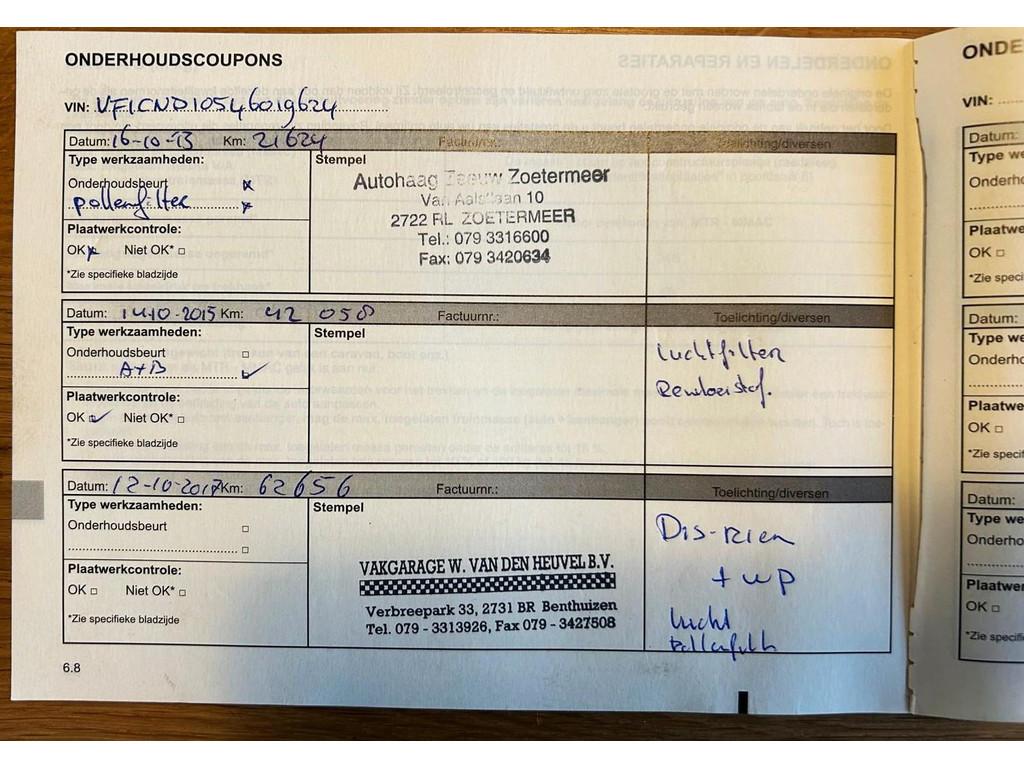 ONDERHOUDSCOUPONS
VIN: VF1CND10546019624
Datum: 16-10-13 Km: 21624 Factuurnr.: Toelichting/diversen
Type werkzaamheden:
Stempel
Onderhoudsbeurt x
pollenfilter x
Autohaag Zeeuw Zoetermeer
Van Aalstlaan 10
2722 RL ZOETERMEER
Tel.: 079 3316600
Fax: 079 3420634
Plaatwerkcontrole:
OK x Niet OK* □
*Zie specifieke bladzijde
Datum: 14-10-2015 Km: 42 058 Factuurnr.: Toelichting/diversen
Type werkzaamheden:
Stempel
Onderhoudsbeurt □
A+B ✓
luchtfilter
Remvloeistof.
Plaatwerkcontrole:
OK ✓ Niet OK* □
*Zie specifieke bladzijde
Datum: 12-10-2017 Km: 62656 Factuurnr.: Toelichting/diversen
Type werkzaamheden:
Stempel
Onderhoudsbeurt □
□
Dis-riem
+ wp
lucht
Pollenfilt
VAKGARAGE W. VAN DEN HEUVEL B.V.
Verbreepark 33, 2731 BR Benthuizen
Tel. 079 - 3313926, Fax 079 - 3427508
Plaatwerkcontrole:
OK □ Niet OK* □
*Zie specifieke bladzijde
6.8
ONDE
VIN:
Datum:
Type we
Onderho
Plaatwe
OK □
*Zie speci
Datum:
Type we
Onderho
Plaatwe
OK □
*Zie specif
Datum:
Type we
Onderho
Plaatwer
OK □
*Zie specifi